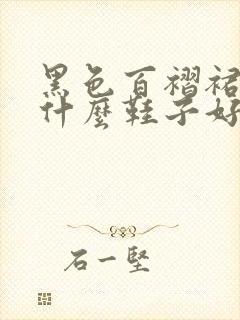 黑色百褶裙
什麼鞋子好
石一堅